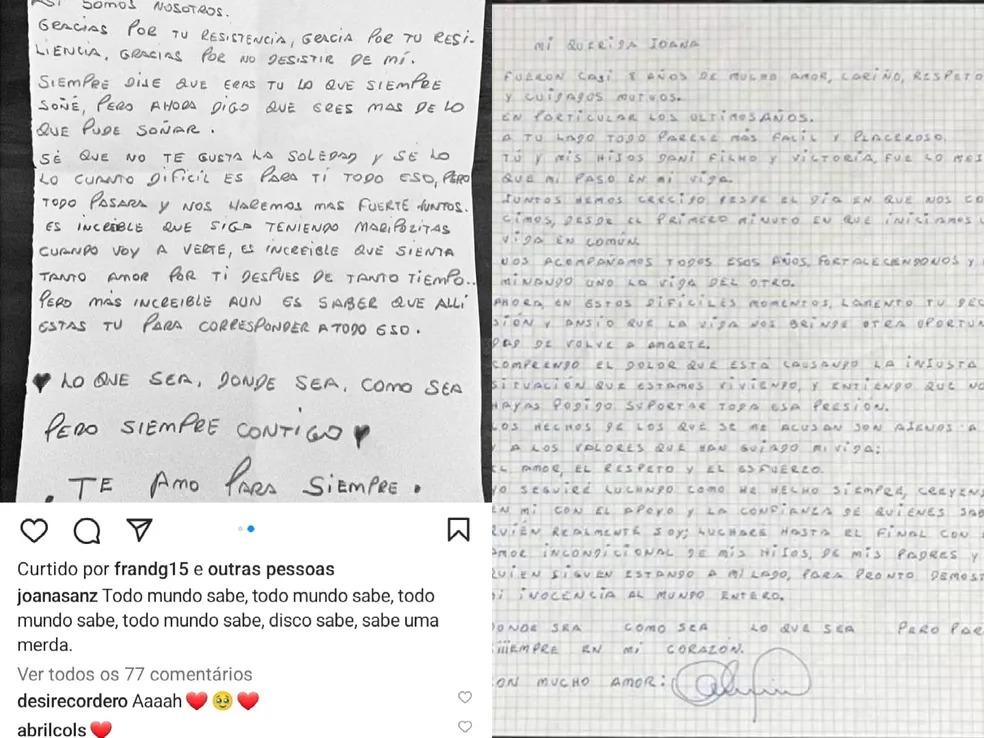 ASI SOMOS NOSOTROS.
GRACIAS POR TU RESISTENCIA, GRACIA POR TU RESI-
LIENCIA, GRACIAS POR NO DESISTIR DE MÍ.
SIEMPRE DIJE QUE ERAS TU LO QUE SIEMPRE
SOÑE, PERO AHORA DIGO QUE ERES MAS DE LO
QUE PUDE SOÑAR.
SÉ QUE NO TE GUSTA LA SOLEDAD Y SÉ LO
LO CUANTO DIFICIL ES PARA TI TODO ESO, PERO
TODO PASARA Y NOS HAREMOS MAS FUERTE JUNTOS.
ES INCREIBLE QUE SIGA TENIENDO MARIPOZITAS
CUANDO VOY A VERTE, ES INCREIBLE QUE SIENTA
TANTO AMOR POR TI DESPUES DE TANTO TIEMPO..
PERO MÁS INCREIBLE AUN ES SABER QUE ALLI
ESTAS TU PARA CORRESPONDER A TODO ESO.
♥ LO QUE SEA, DONDE SEA, COMO SEA
PERO SIEMPRE CONTIGO ♥
. TE AMO PARA SIEMPRE.
Curtido por frandg15 e outras pessoas
joanasanz Todo mundo sabe, todo mundo sabe, todo
mundo sabe, todo mundo sabe, disco sabe, sabe uma
merda.
Ver todos os 77 comentários
desirecordero Aaaah ❤️🥹❤️
abrilcols ❤️
MI QUERIDA JOANA
FUERON CASI 8 AÑOS DE MUCHO AMOR, CARIÑO, RESPETO
Y CUIDADOS MUTUOS.
EN PARTICULAR LOS ULTIMOS AÑOS.
A TU LADO TODO PARECE MÁS FACIL Y PLACEROSO.
TÚ Y MIS HIJOS DANI FILHO Y VICTORIA, FUE LO MEJ
QUE MI PASO EN MI VIDA.
JUNTOS HEMOS CRECIDO DESDE EL DÍA EN QUE NOS CO
CIMOS, DESDE EL PRIMERO MINUTO EN QUE INICIAMOS U
VIDA EN COMÚN.
NOS ACOMPAÑAMOS TODOS ESOS AÑOS, FORTALECENDONOS Y I
MINANDO UNO LA VIDA DEL OTRO.
AHORA, EN ESTOS DIFICILES MOMENTOS, LAMENTO TU DEC
SIÓN Y ANSIO QUE LA VIDA NOS BRINDE OTRA OPORTUN
DAD DE VOLVE A AMARTE.
COMPRENDO EL DOLOR QUE ESTA CAUSANDO LA INJUSTA
SITUACIÓN QUE ESTAMOS VIVIENDO, Y ENTIENDO QUE NO
HAYAS PODIDO SUPORTAR TODA ESA PRESIÓN.
LOS HECHOS DE LOS QUE SE ME ACUSAN SON AJENOS A
Y A LOS VALORES QUE HAN GUIADO MI VIDA:
EL AMOR, EL RESPETO Y EL ESFUERZO.
YO SEGUIRÉ LUCHANDO COMO HE HECHO SIEMPRE, CREYEN
EN MÍ CON EL APOYO Y LA CONFIANZA DE QUIENES SAB
QUIÉN REALMENTE SOY; LUCHARÉ HASTA EL FINAL CON
AMOR INCONDICIONAL DE MIS HIJOS, DE MIS PADRES Y
QUIEN SIGUEN ESTANDO A MI LADO, PARA PRONTO DEMOST
MI INOCENCIA AL MUNDO ENTERO.
DONDE SEA COMO SEA LO QUE SEA PERO PAR
SIIIEMPRE EN MI CORAZÓN.
CON MUCHO AMOR: